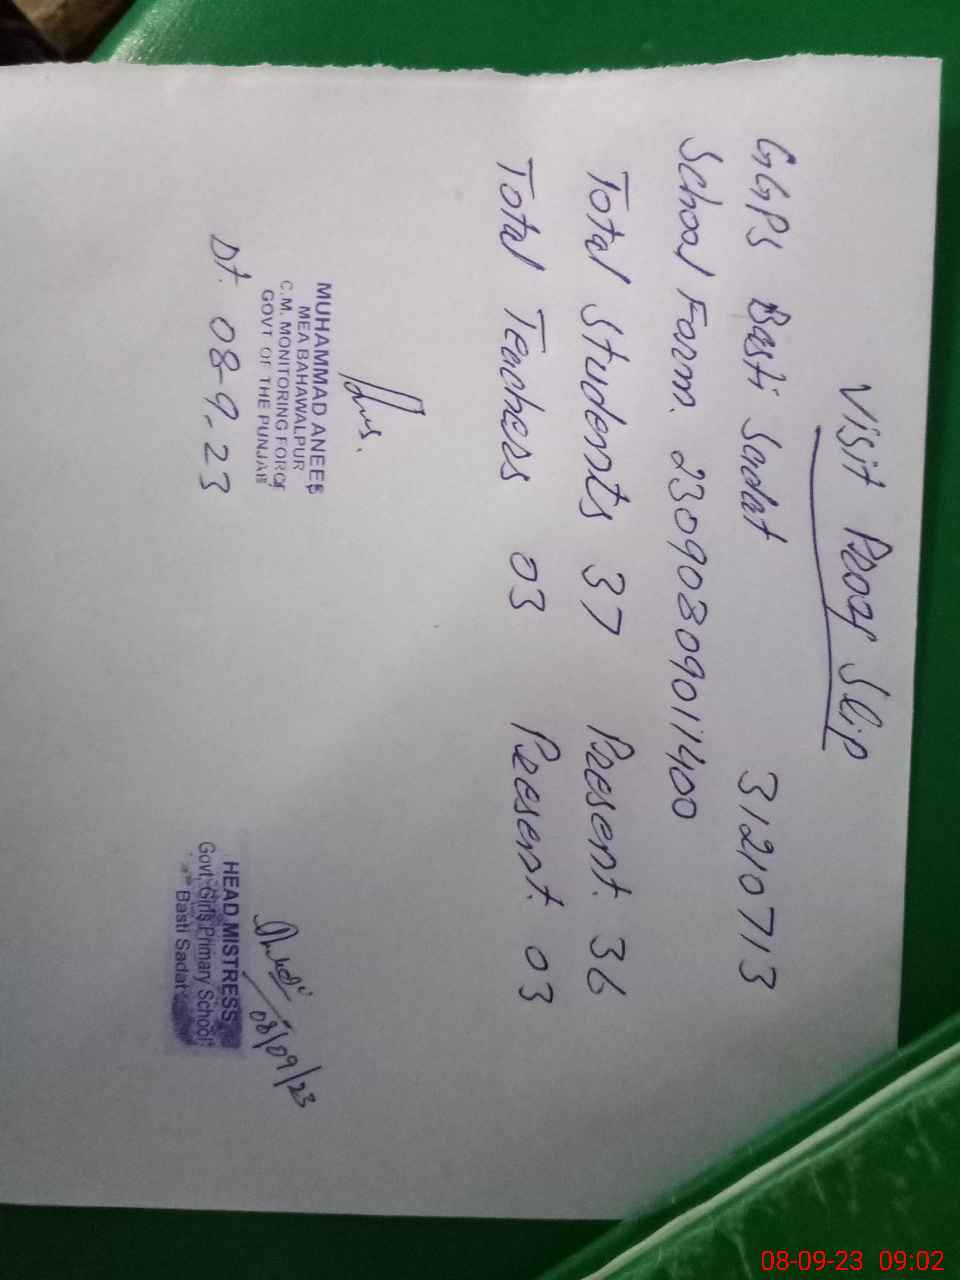 Visit Proof Slip
GGPS Basti Sadat 31210713
School Form. 23090309011400
Total Students 37 Present. 36
Total Teachers 03 Present. 03
MUHAMMAD ANEES
MEA BAHAWALPUR
C.M. MONITORING FORCE
GOVT OF THE PUNJAB
Dt. 08-9-23
08/09/23
HEAD MISTRESS
Govt: Girls Primary School
Basti Sadat
08-09-23 09:02